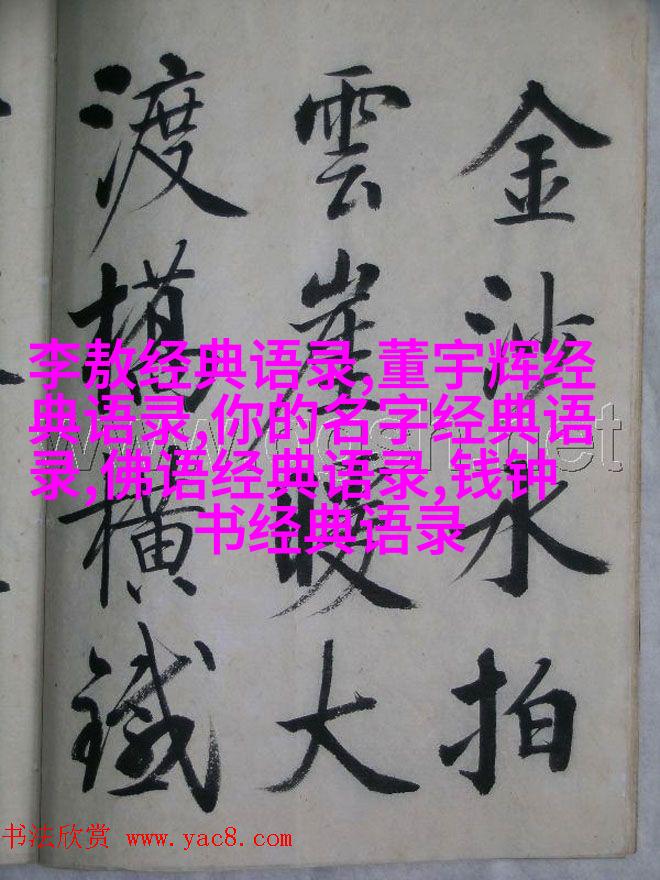 金沙水拍
雲崖暖大
渡橋橫鐵
李敖经典语录,董宇辉经
典语录,你的名字经典语
录,佛语经典语录,钱钟
书经典语录
书法欣赏 www.yac8.com